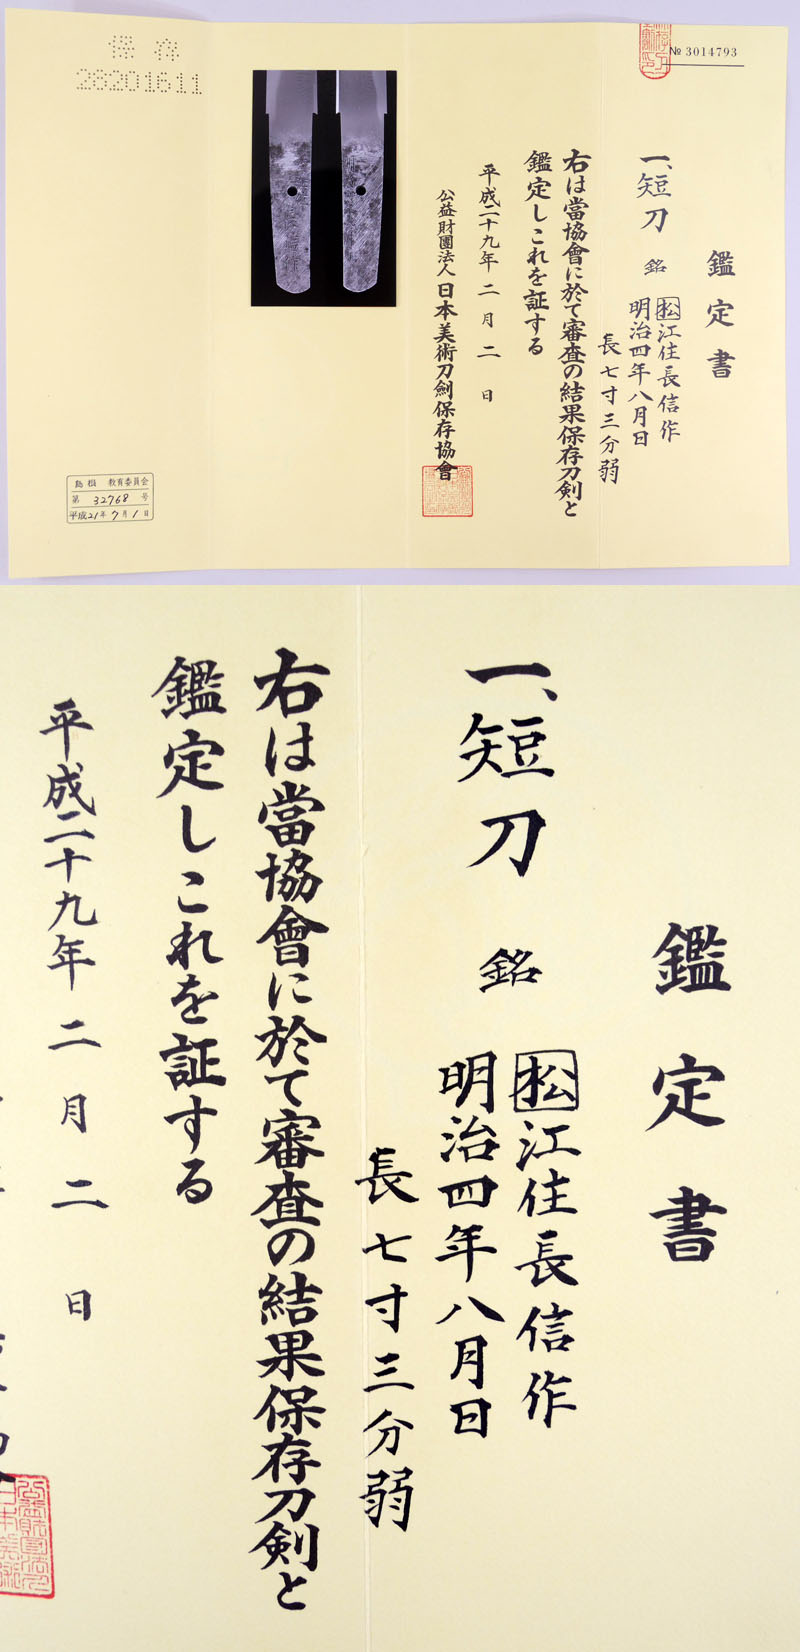 № 3014793
鑑定書
一、短刀 銘 松江住長信作
明治四年八月日
長七寸三分弱
右は當協會に於て審査の結果保存刀剣と
鑑定しこれを証する
平成二十九年二月二日
公益財團法人日本美術刀劍保存協會
保存
28201611
島根 教育委員会
第 32768 号
平成21年7月1日
鑑定書
一、短刀 銘 松江住長信作
明治四年八月日
長七寸三分弱
右は當協會に於て審査の結果保存刀剣と
鑑定しこれを証する
平成二十九年二月二日